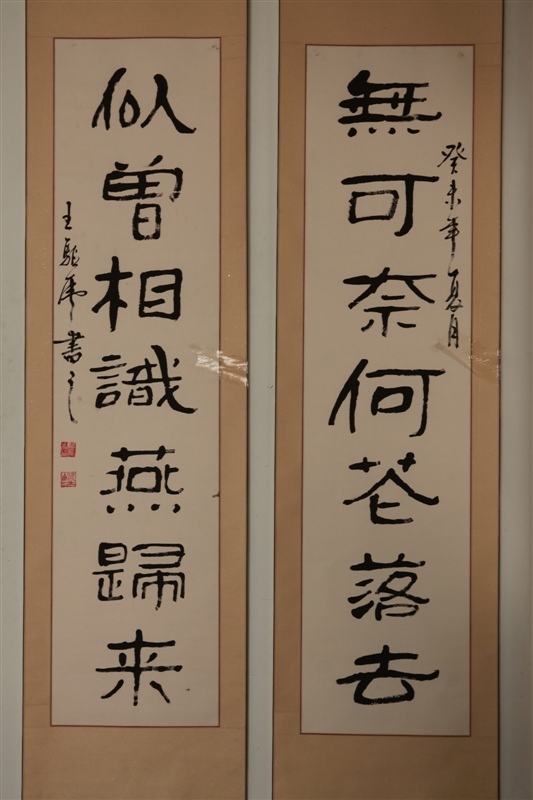 癸未年夏月
無可奈何花落去
似曾相識燕歸来
王
書之